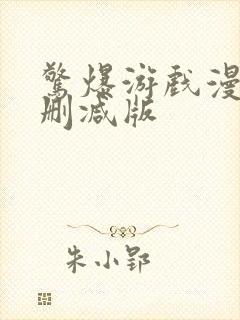 驚爆游戏漫
删减版
朱小郢